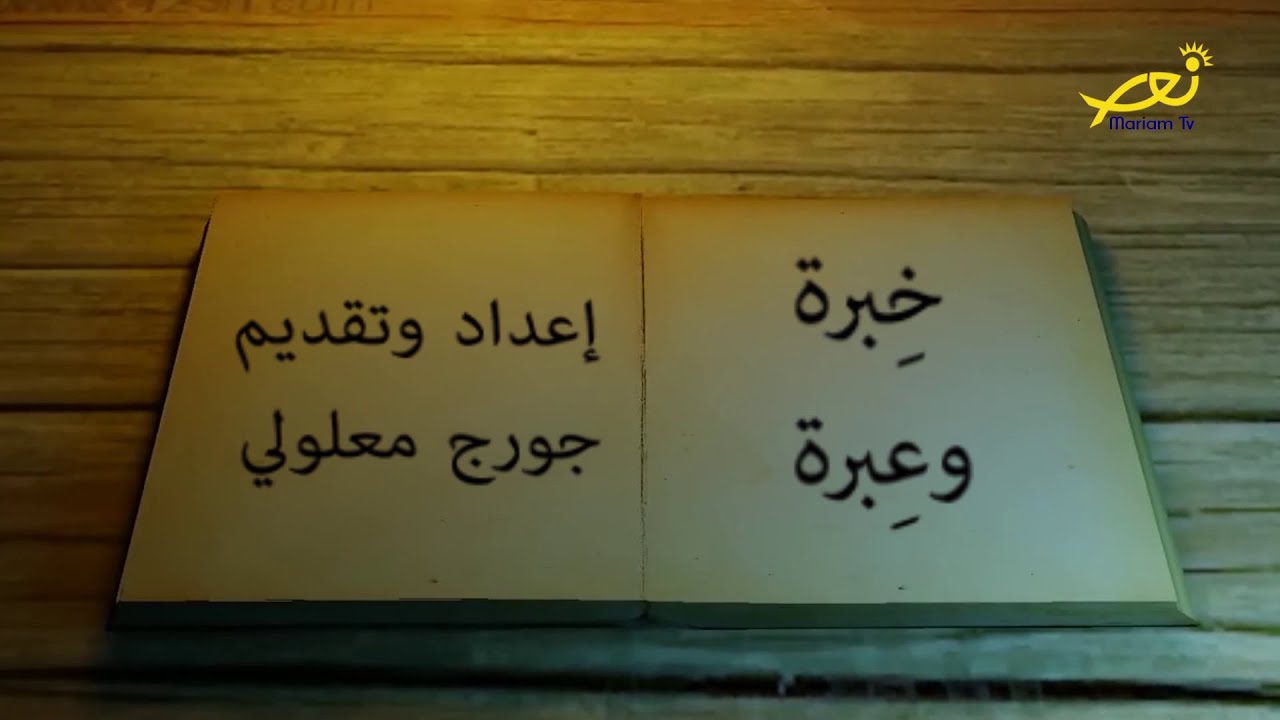 Mariam Tv
خِبرة
وعِبرة
إعداد وتقديم
جورج معلولي